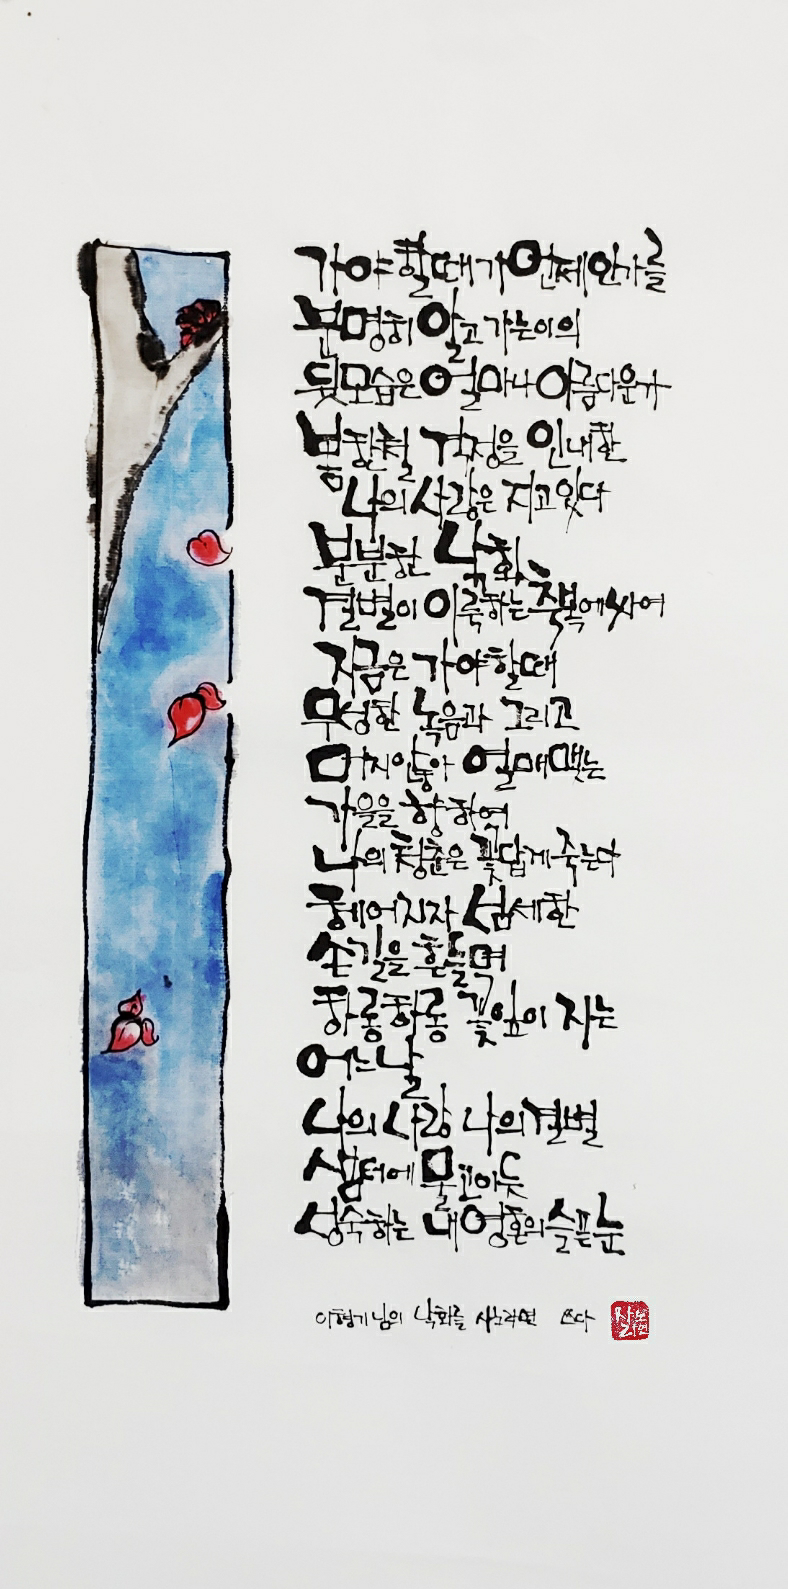 가야할때가언제인가를
분명히알고가는이의
뒷모습은얼마나아름다운가
봄한철 격정을 인내한
나의사랑은 지고있다
분분한 낙화
결별이이룩하는축복에싸여
지금은 가야할때
무성한 녹음과 그리고
머지않아 열매맺는
가을을 향하여
나의청춘은 꽃답게죽는다
헤어지자 섬세한
손길을 흔들며
하롱하롱 꽃잎이 지는
어느날
나의 사랑 나의결별
샘터에 물고이듯
성숙하는 내영혼의슬픈눈
이형기님의 낙화를 사노라면 쓰다
사노라면